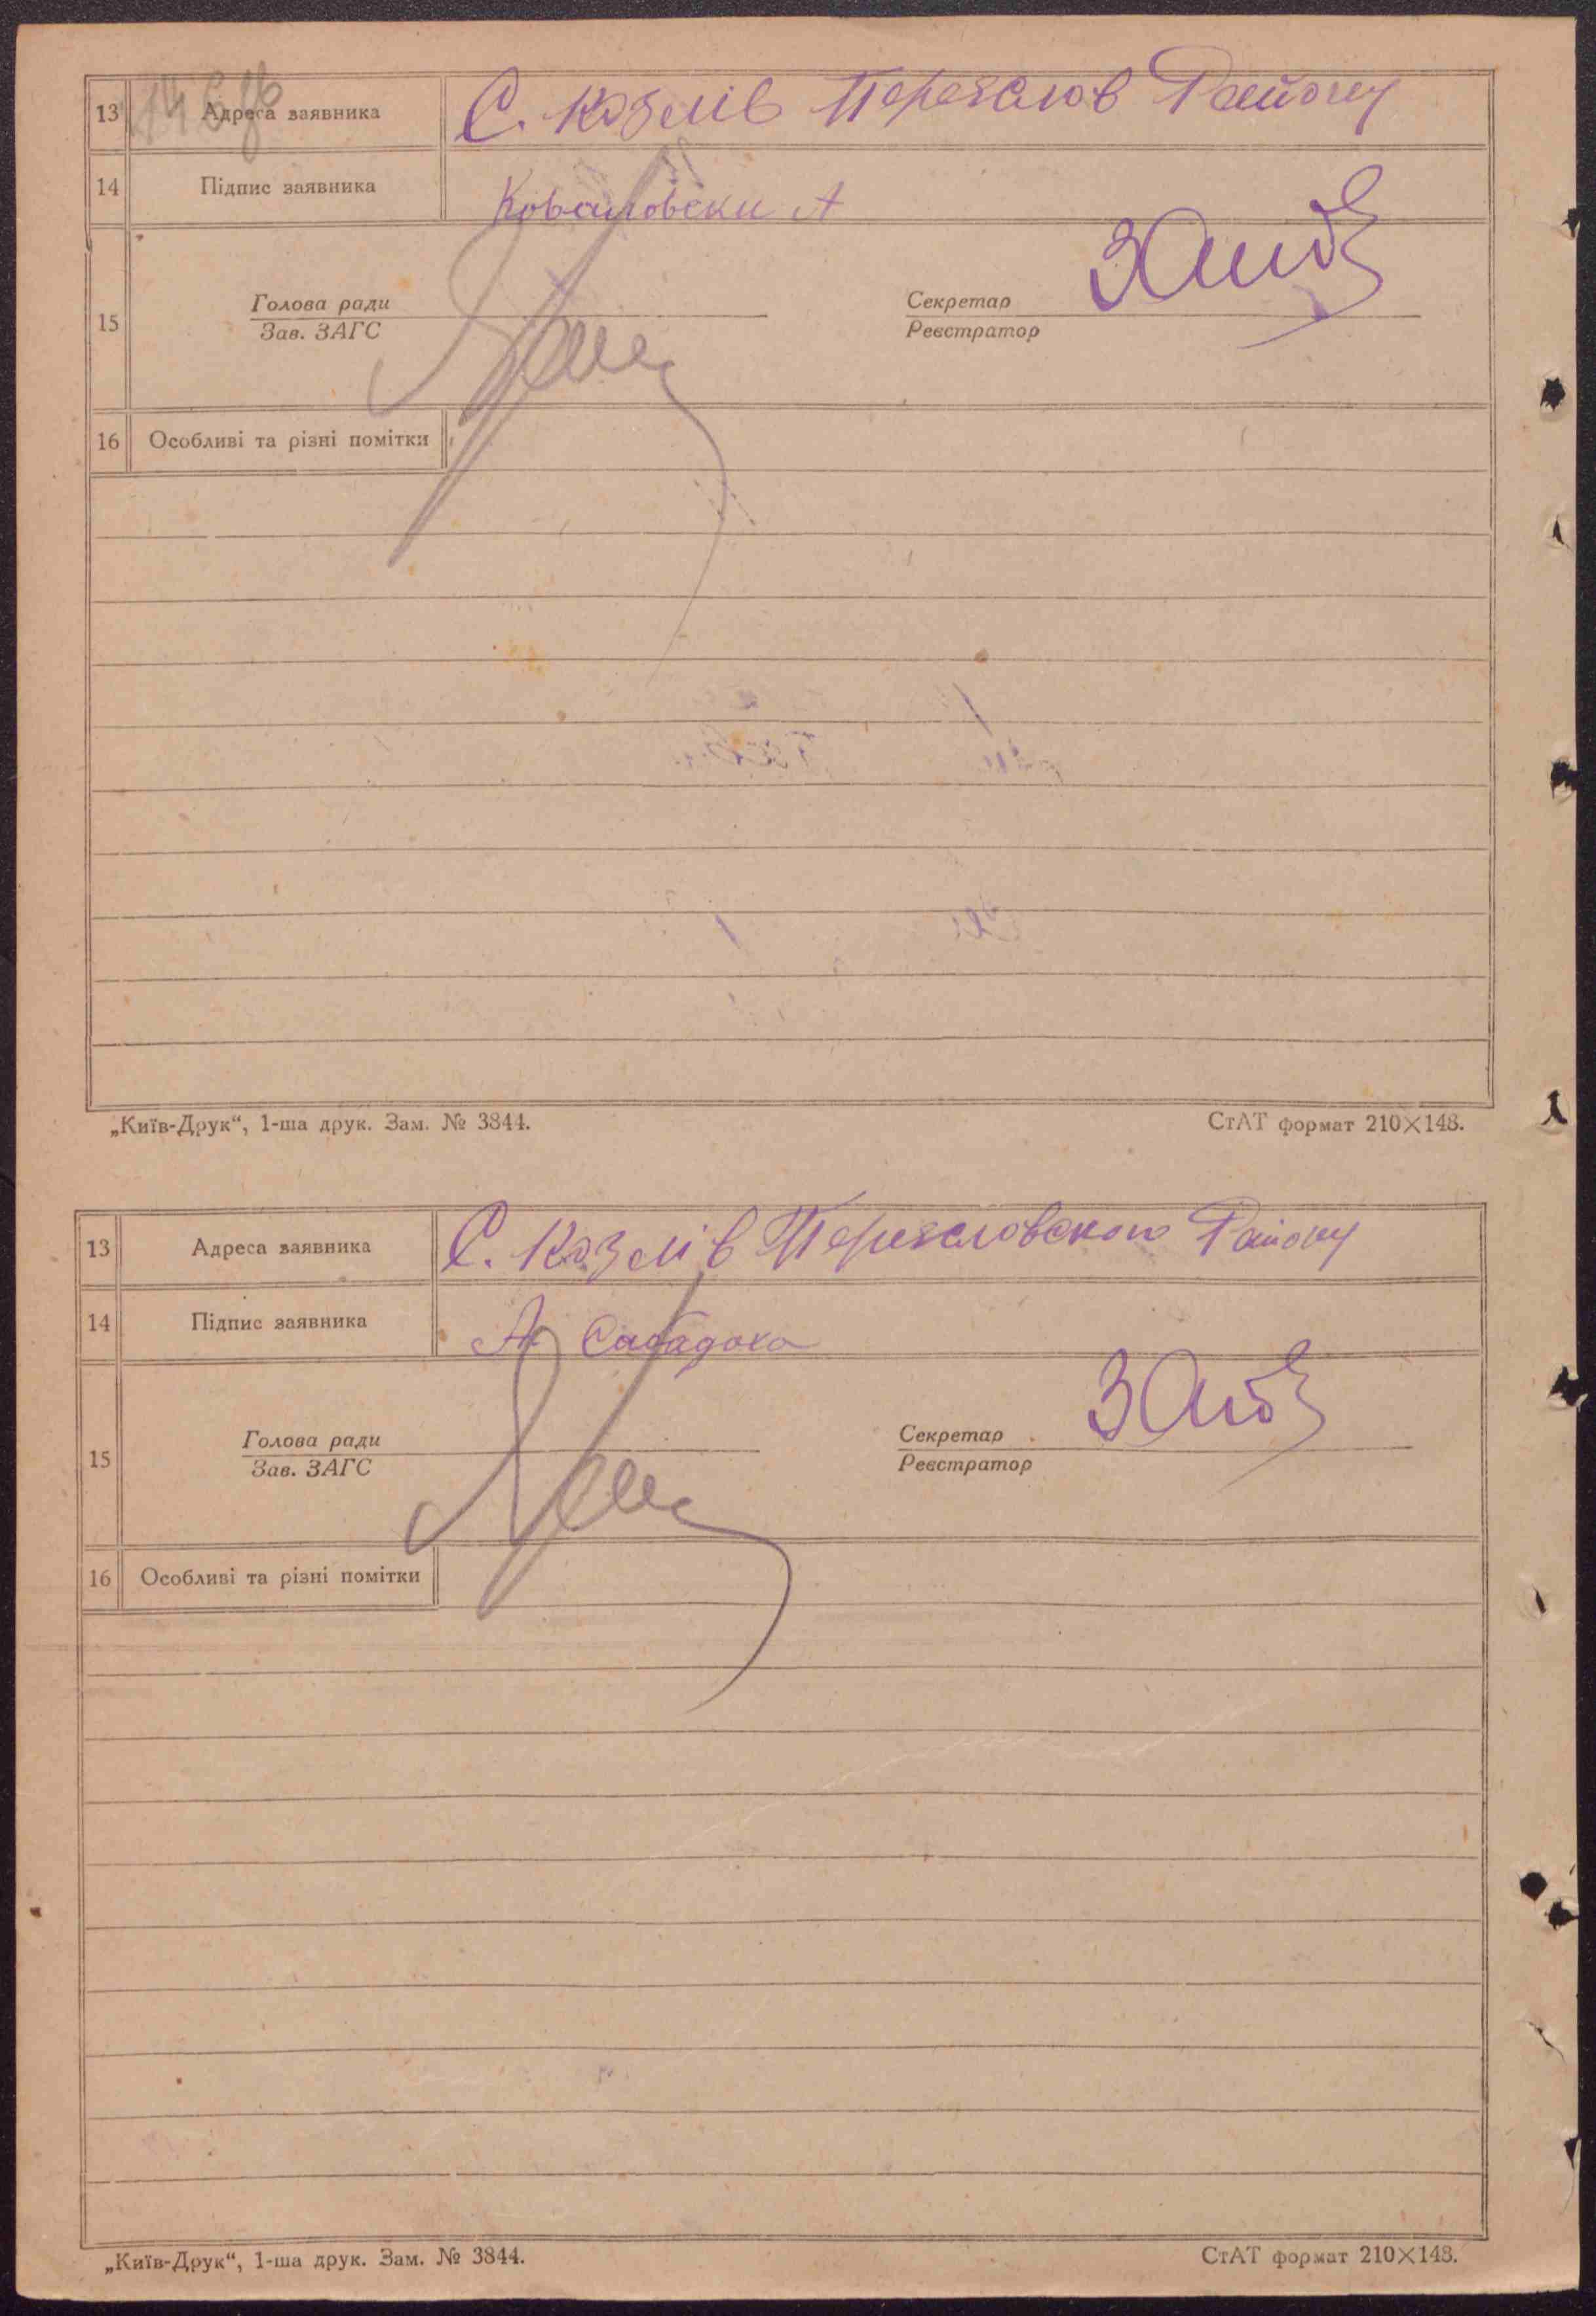 13 Адреса заявника С. Козлів Переяслов Району
14 Підпис заявника Коваловски А
15 Голова ради Секретар
Зав. ЗАГС Реєстратор
16 Особливі та різні помітки
„Київ-Друк“, 1-ша друк. Зам. № 3844. СтАТ формат 210×148.
13 Адреса заявника С. Козлів Переясловского Району
14 Підпис заявника А.
15 Голова ради Секретар
Зав. ЗАГС Реєстратор
16 Особливі та різні помітки
„Київ-Друк“, 1-ша друк. Зам. № 3844. СтАТ формат 210×148.